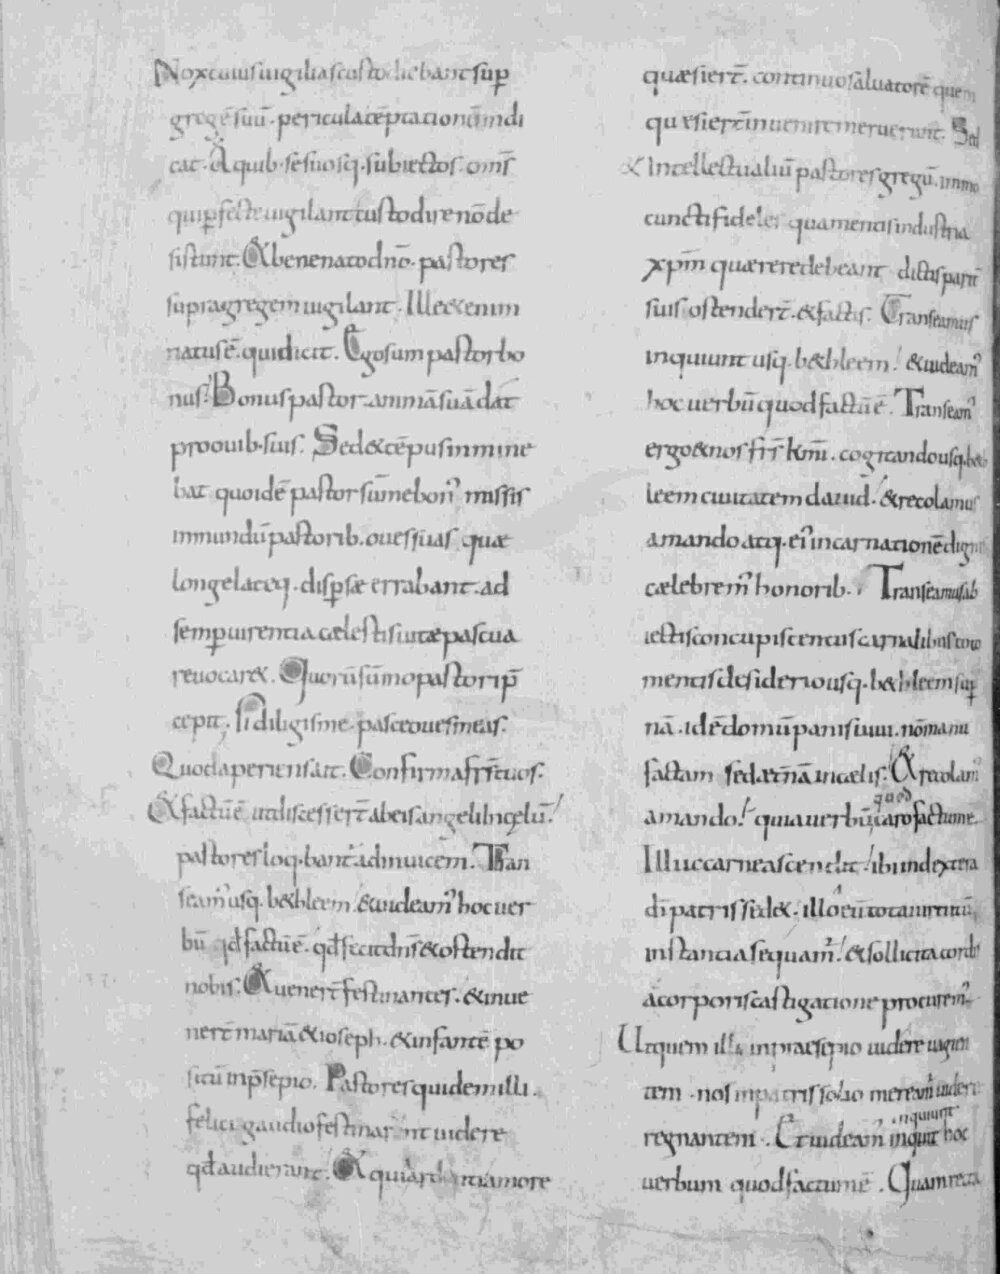 Noxtuiuſ uigiliaſ cuſtodiebant ſup̄
gregē ſuū · pericula tēptationū indi
cat · A quib· ſe ſuoſq· ſubiectoſ · om̄ſ
qui ꝑfecte uigilant cuſtodire nō de
ſiſtunt. & bene nato dn̄o · paſtoreſ
ſupra gregem uigilant · Ille & enim
natuſ ē · qui dicit. Ego ſum paſtor bo
nuſ. Bonuſ paſtor animā ſuā dat
pro ouib· ſuiſ. Sed & tēpuſ inmine
bat quo idē paſtor ſūme bonꝰ miſſiſ
in mundū paſtorib. oueſ ſuaſ quæ
longe lateq· diſꝑſæ errabant · ad
ſemꝑ uirentia cæleſtiſ uitæ paſcua
reuocar&. Quorū ſūmo paſtori p̄
cepit. ſi diligiſ me · paſce oueſ meaſ.
Quod aperienſ ait. Confirma fr̄ſ tuoſ.
& factū ē ut diſceſſert̄ ab eiſ angeli in cęlū.
paſtoreſ loq·bant̄ ad inuicem. Tran
ſeamꝰ uſq· b&hleem & uideamꝰ hoc uer
bū qđ factū ē · qđ fecit dn̄ſ & oſtendit
nobiſ. & uenert̄ feſtinanteſ · & inue
nert̄ mariā & ioſeph · & infantē po
ſitū in p̄ſepio. Paſtoreſ quidem illi
felici gaudio feſtinarunt uidere
qđ audierant. & quia ardenti amore
quæſiert̄ · continuo ſaluatorē quem
quæſiert̄ inuenire meruerunt. Sed
& intellectualiū paſtoreſ gregū · immo
cuncti fideleſ qua mentiſ induſtria
xp̄m quærere debeant dictiſ parit̄
ſuiſ oſtendert̄ · & factiſ. Tranſeamuſ
inquiunt uſq· b&hleem & uideamꝰ
hoc uerbū quod factū ē. Tranſeamꝰ
ergo & noſ fr̄ſ km̄i · cogitando uſq· b&h
leem ciuitatem dauid · & recolamuſ
amando atq· eiꝰ incarnationē digniſ
cælebremꝰ honorib· Tranſeamuſ ab
iectiſ concupiſcentiiſ carnalibuſ toto
mentiſ deſiderio uſq· b&hleem ſuꝑ
nā · id ē domū paniſ uiui · nō manu
factam ſed ætn̄ā in cæliſ. & recolamꝰ
amando quia uerbū quod caro factum ē
Illuc carne aſcendit ubi in dextera
dī patriſ ſed& · illo eū tota uirtutū
inſtantia ſequamꝰ & ſollicita cordiſ
ac corporiſ caſtigatione procuremꝰ
Ut quem illi in praeſepio uidere uagien
tem · noſ in patriſ ſolio mereamꝰ uidere
regnantem. Et uideamꝰ inquiunt inquit hoc
uerbum quod factum ē. Quam recta